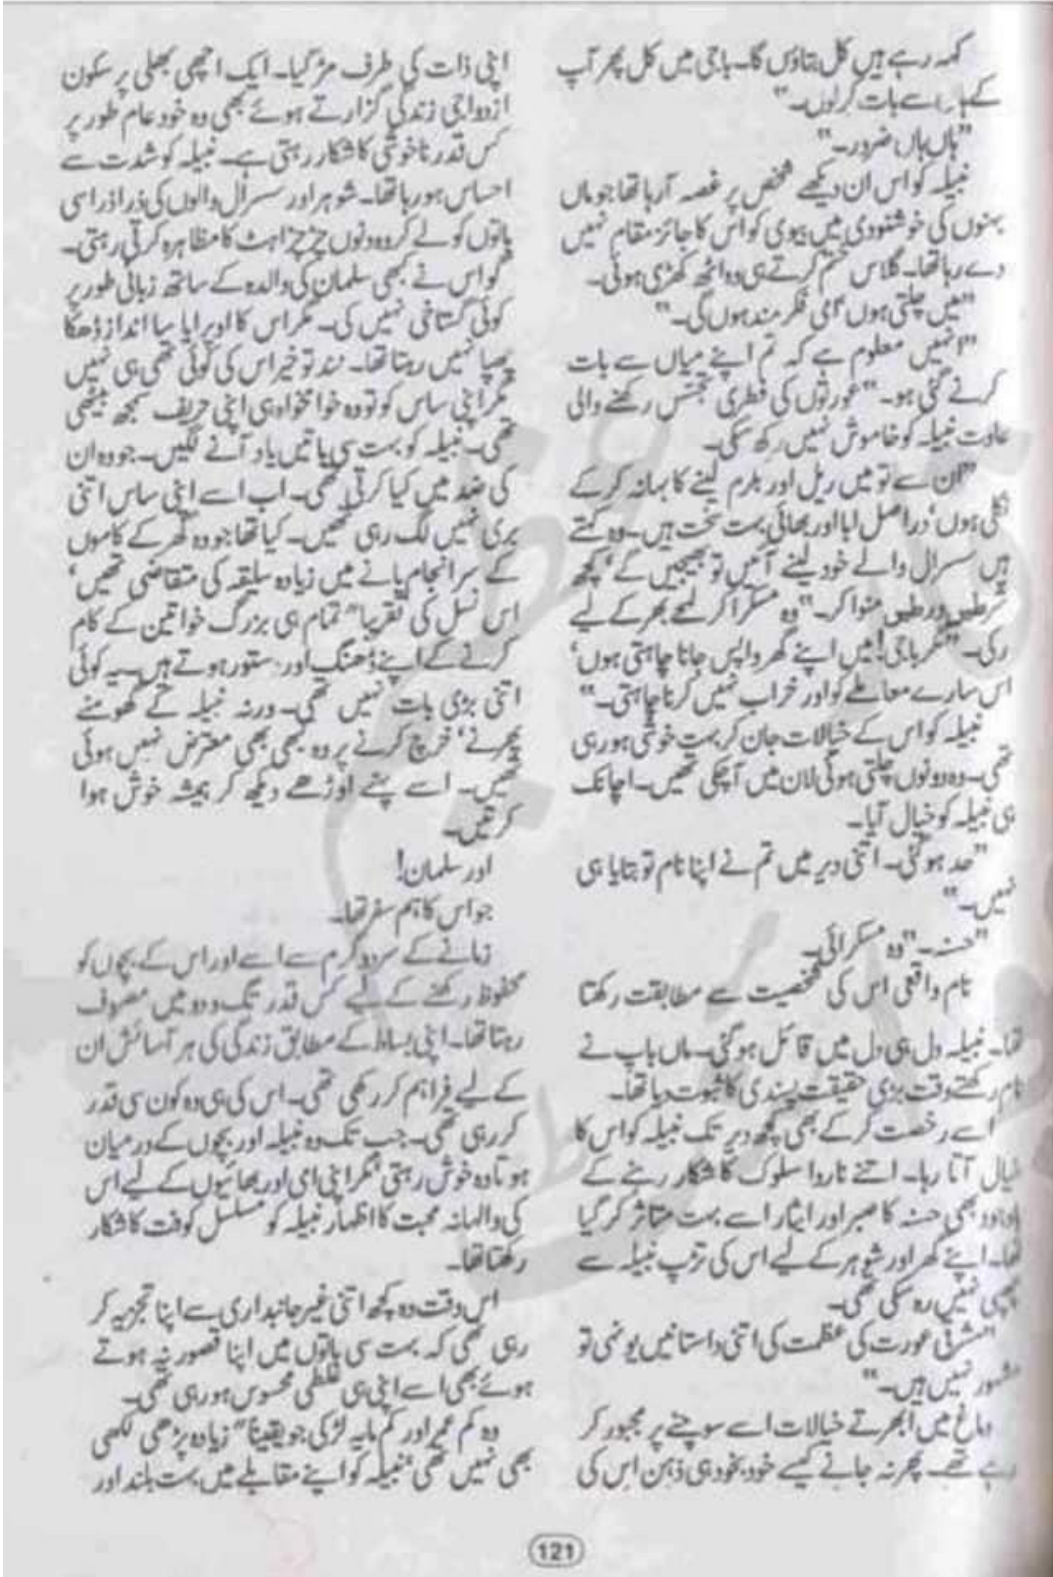 کہہ رہے ہیں کل بتاؤں گا۔ باجی میں کل پھر آپ
کے ہاں سے بات کرلوں۔"
"ہاں ہاں ضرور۔"
نبیلہ کو اس ان دیکھے شخص پر غصہ آرہا تھا جو ماں
بہنوں کی خوشنودی میں بیوی کو اس کا جائز مقام نہیں
دے رہا تھا۔ گلاس ختم کرتے ہی وہ اٹھ کھڑی ہوئی۔
"میں چلتی ہوں امی فکر مند ہوں گی۔"
"انہیں معلوم ہے کہ تم اپنے میاں سے بات
کرنے گئی ہو۔" عورتوں کی فطری تجسس رکھنے والی
عادت نبیلہ کو خاموش نہیں رکھ سکی۔
"ان سے تو میں ریل اور بکرم لینے کا بہانہ کرکے
نکلی ہوں، دراصل ابا اور بھائی بہت سخت ہیں۔ وہ کہتے
ہیں سسرال والے خود لینے آئیں تو بھیجیں گے، کچھ
شرطیں ورطیں منوا کر۔" وہ مسکرا کر لمحے بھر کے لیے
رکی۔ "مگر باجی! میں اپنے گھر واپس جانا چاہتی ہوں،
اس سارے معاملے کو اور خراب نہیں کرنا چاہتی۔"
نبیلہ کو اس کے خیالات جان کر بہت خوشی ہورہی
تھی۔ وہ دونوں چلتی ہوئی لان میں آچکی تھیں۔ اچانک
ہی نبیلہ کو خیال آیا۔
"حد ہوگئی۔ اتنی دیر میں تم نے اپنا نام تو بتایا ہی
نہیں۔"
"حسنہ۔" وہ مسکرائی۔
نام واقعی اس کی شخصیت سے مطابقت رکھتا
تھا۔ نبیلہ دل ہی دل میں قائل ہوگئی۔ ماں باپ نے
نام رکھتے وقت بڑی حقیقت پسندی کا ثبوت دیا تھا۔
اسے رخصت کرکے بھی کچھ دیر تک نبیلہ کو اس کا
خیال آتا رہا۔ اتنے ناروا سلوک کا شکار رہنے کے
باوجود بھی حسنہ کا صبر اور ایثار اسے بہت متاثر کرگیا
تھا۔ اپنے گھر اور شوہر کے لیے اس کی تڑپ نبیلہ سے
چھپی نہیں رہ سکی تھی۔
"مشرقی عورت کی عظمت کی اتنی داستانیں یونہی تو
مشہور نہیں ہیں۔"
دماغ میں ابھرتے خیالات اسے سوچنے پر مجبور کر
رہے تھے۔ پھر نہ جانے کیسے خود بخود ہی ذہن اس کی
اپنی ذات کی طرف مڑ گیا۔ ایک اچھی بھلی پرسکون
ازدواجی زندگی گزارتے ہوئے بھی وہ خود عام طور پر
کس قدر ناخوشی کا شکار رہتی ہے۔ نبیلہ کو شدت سے
احساس ہورہا تھا۔ شوہر اور سسرال والوں کی ذرا ذرا سی
باتوں کو لے کر وہ دنوں چڑچڑاہٹ کا مظاہرہ کرتی رہتی۔
گو اس نے کبھی سلمان کی والدہ کے ساتھ زبانی طور پر
کوئی گستاخی نہیں کی۔ مگر اس کا اوپرا اپنا سا انداز ڈھکا
چھپا نہیں رہتا تھا۔ نند تو خیر اس کی کوئی تھی ہی نہیں
مگر اپنی ساس کو تو وہ خوامخواہ ہی اپنی حریف سمجھ بیٹھی
تھی۔ نبیلہ کو بہت سی باتیں یاد آنے لگیں۔ جو وہ ان
کی ضد میں کیا کرتی تھی۔ اب اسے اپنی ساس اتنی
بری نہیں لگ رہی تھیں۔ کیا تھا جو وہ گھر کے کاموں
کے سرانجام پانے میں زیادہ سلیقہ کی متقاضی تھیں،
اس نسل کی تقریباً تمام ہی بزرگ خواتین کے کام
کرنے کے اپنے ڈھنگ اور دستور ہوتے ہیں۔ یہ کوئی
اتنی بڑی بات نہیں تھی۔ ورنہ نبیلہ کے گھومنے
پھرنے، خرچ کرنے پر وہ کبھی بھی معترض نہیں ہوئی
تھیں۔ اسے پہنے اوڑھے دیکھ کر ہمیشہ خوش ہوا
کرتیں۔
اور سلمان!
جو اس کا ہم سفر تھا۔
زمانے کے سرد و گرم سے اسے اور اس کے بچوں کو
محفوظ رکھنے کے لیے کس قدر تگ و دو میں مصروف
رہتا تھا۔ اپنی بساط کے مطابق زندگی کی ہر آسائش ان
کے لیے فراہم کر رکھی تھی۔ اس کی ہی وہ کون سی قدر
کررہی تھی۔ جب تک وہ نبیلہ اور بچوں کے درمیان
ہوتا وہ خوش رہتی، مگر اپنی امی اور بھائیوں کے لیے اس
کی والہانہ محبت کا اظہار نبیلہ کو مسلسل کوفت کا شکار
رکھتا تھا۔
اس وقت وہ کچھ اتنی غیر جانبداری سے اپنا تجزیہ کر
رہی تھی کہ بہت سی باتوں میں اپنا قصور نہ ہوتے
ہوئے بھی اسے اپنی ہی غلطی محسوس ہورہی تھی۔
وہ کم عمر اور کم مایہ لڑکی جو یقیناً زیادہ پڑھی لکھی
بھی نہیں تھی، نبیلہ کو اپنے مقابلے میں بہت بلند اور
121